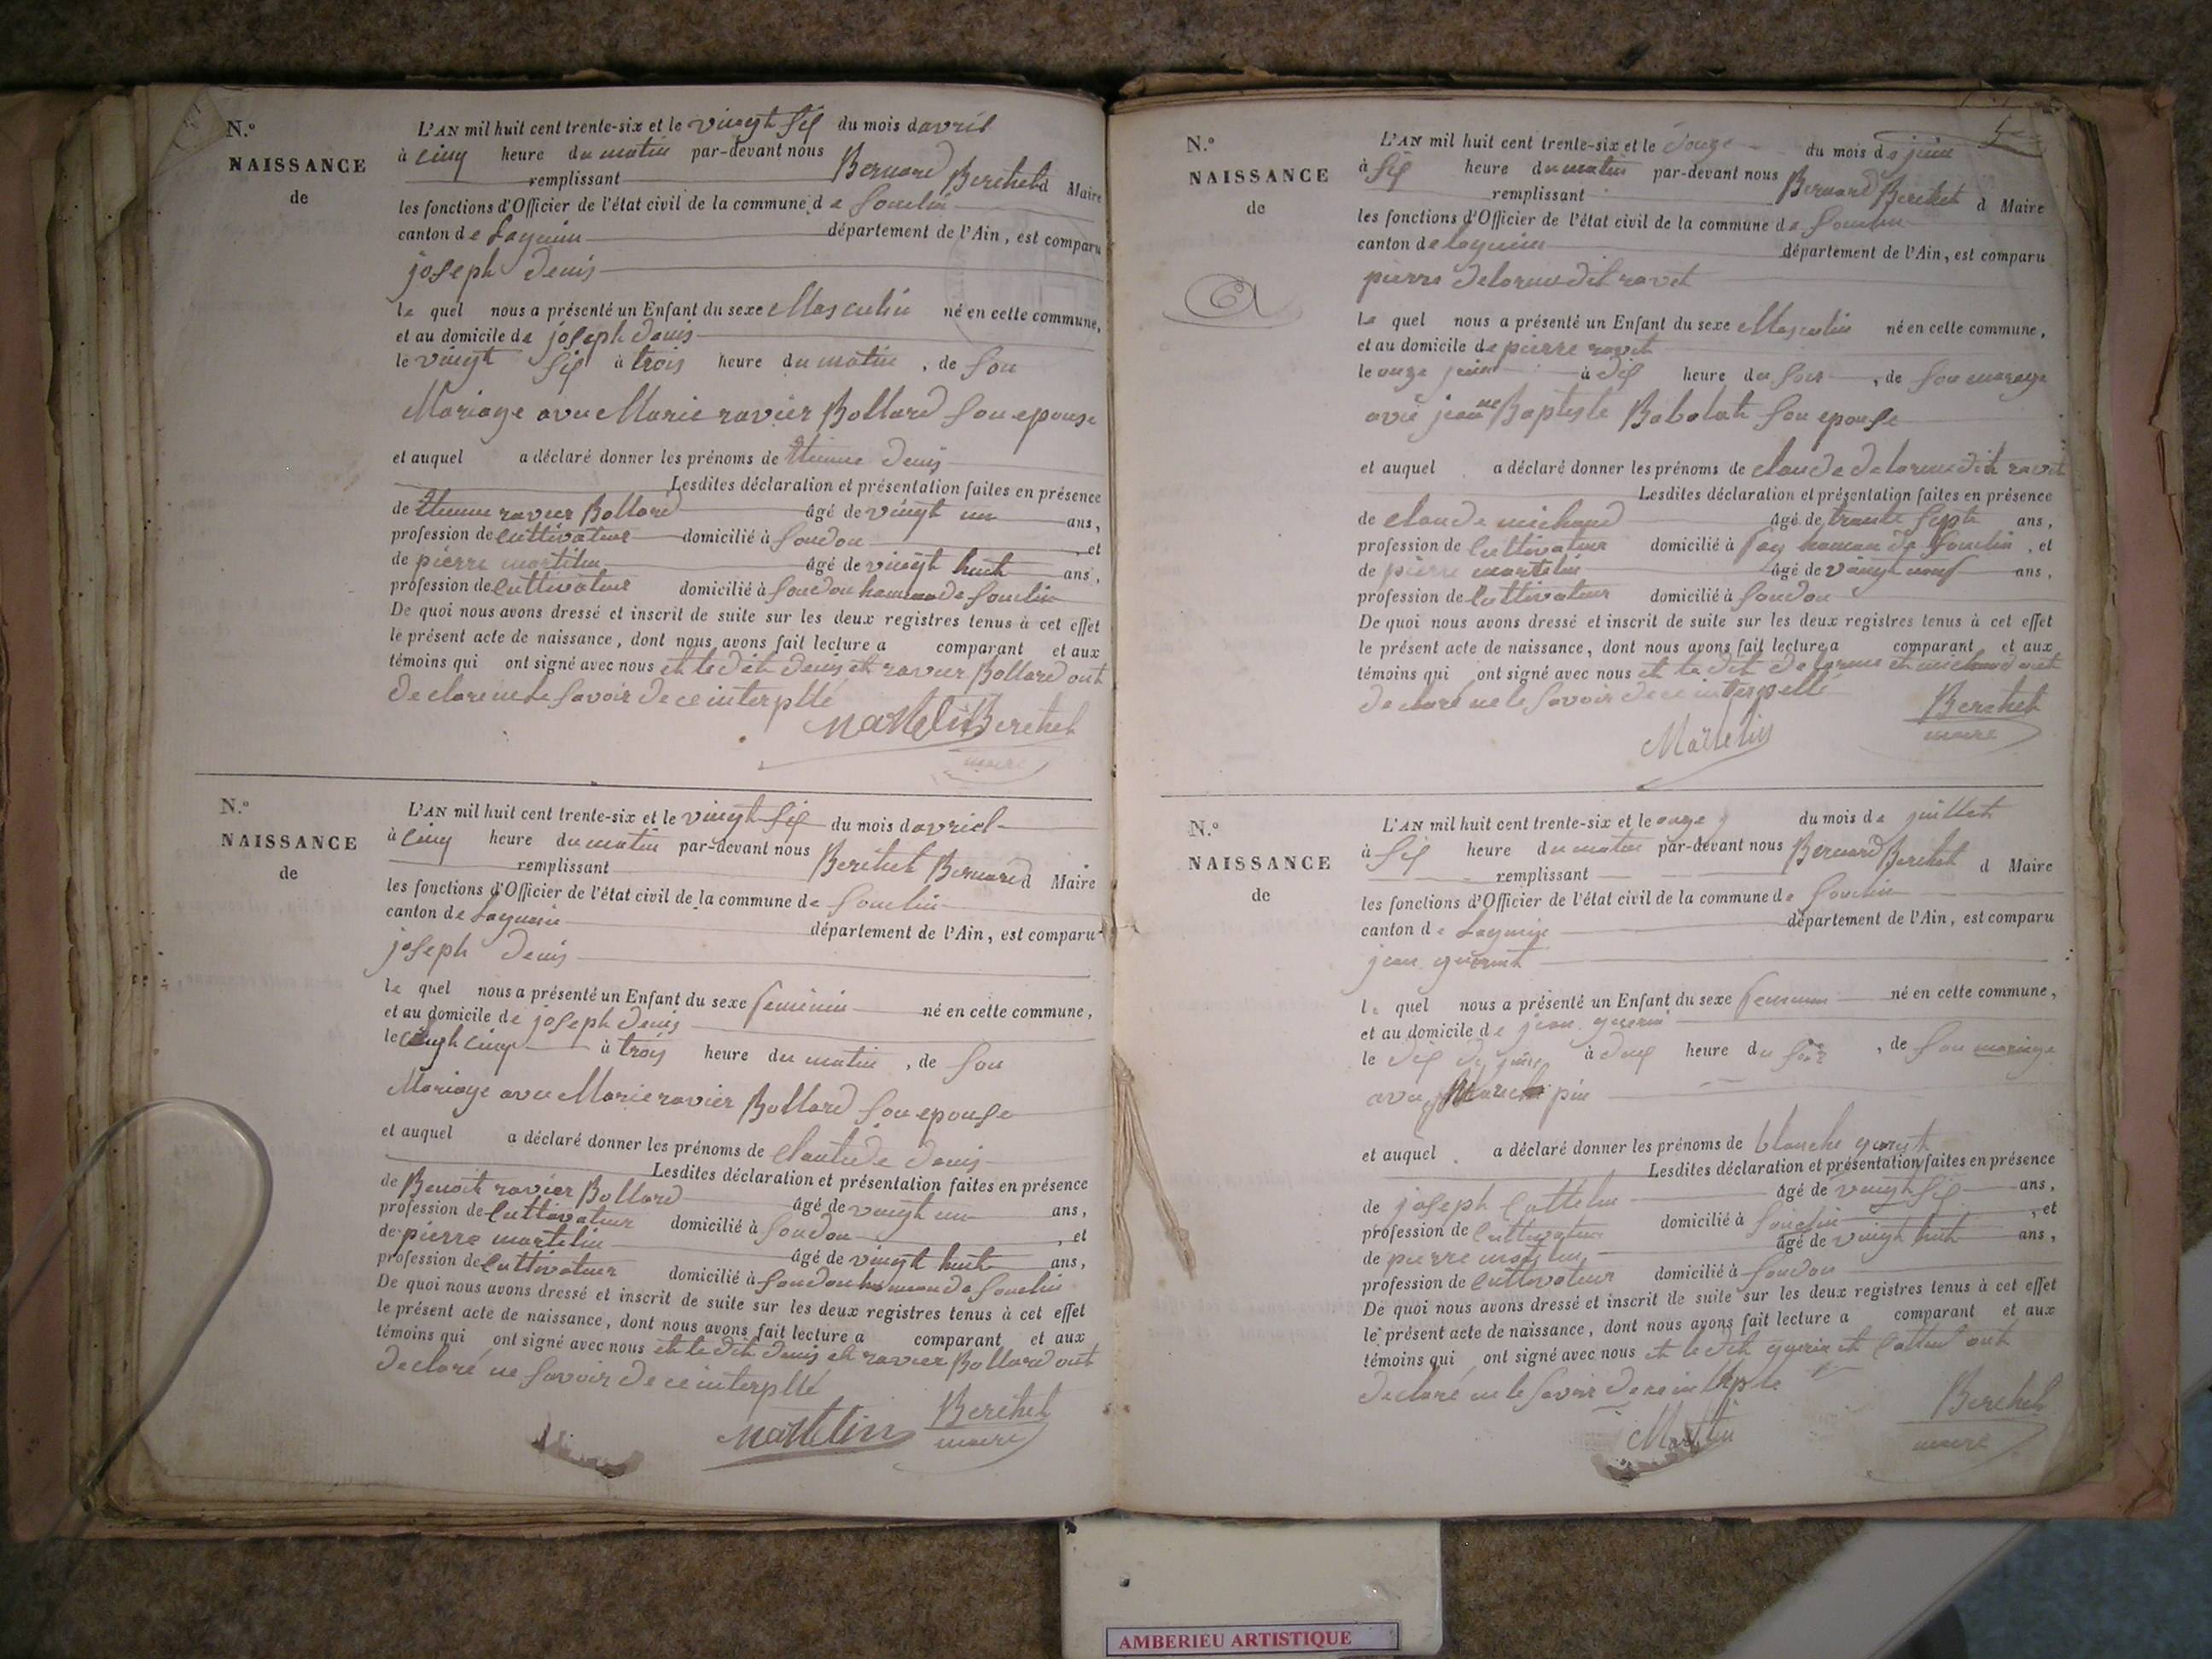 N.º
NAISSANCE
de
L'AN mil huit cent trente-six et le vingt six du mois d avril
à cinq heure du matin par-devant nous Bernard Berchet d Maire
remplissant
les fonctions d'Officier de l'état civil de la commune de Souclin
canton de Lagnieu département de l'Ain, est comparu
joseph Denis
le quel nous a présenté un Enfant du sexe Masculin né en cette commune,
et au domicile de joseph Denis
le vingt six à trois heure du matin, de son
Mariage avec Marie ravier Bollard son epouse
et auquel a déclaré donner les prénoms de Etienne Denis
Lesdites déclaration et présentation faites en présence
de Etienne ravier Bollard âgé de vingt un ans,
profession de Cultivateur domicilié à Soudon, et
de pierre martelin âgé de vingt huit ans,
profession de Cultivateur domicilié à Soudon hameau de Souclin
De quoi nous avons dressé et inscrit de suite sur les deux registres tenus à cet effet
le présent acte de naissance, dont nous avons fait lecture a comparant et aux
témoins qui ont signé avec nous et le dit Denis et ravier Bollard ont
Declare ne le Savoir de ce interpllé
Martelin Berchet
maire
N.º
NAISSANCE
de
L'AN mil huit cent trente-six et le vingt six du mois d avriel
à cinq heure du matin par-devant nous Berchet Bernard d Maire
remplissant
les fonctions d'Officier de l'état civil de la commune de Souclin
canton de Lagnieu département de l'Ain, est comparu
joseph Denis
le quel nous a présenté un Enfant du sexe feminin né en cette commune,
et au domicile de joseph Denis
le vingt cinq à trois heure du matin, de son
Mariage avec Marie ravier Bollard son epouse
et auquel a déclaré donner les prénoms de Denis
Lesdites déclaration et présentation faites en présence
de Benoit ravier Bollard âgé de vingt un ans,
profession de Cultivateur domicilié à Soudon, et
de pierre martelin âgé de vingt huit ans,
profession de Cultivateur domicilié à Soudon hameau de Souclin
De quoi nous avons dressé et inscrit de suite sur les deux registres tenus à cet effet
le présent acte de naissance, dont nous avons fait lecture a comparant et aux
témoins qui ont signé avec nous et le dit Denis et ravier Bollard ont
declaré ne Savoir de ce interpllé
Martelin Berchet
maire
N.º
NAISSANCE
de
L'AN mil huit cent trente-six et le douze du mois de juin
à six heure du matin par-devant nous Bernard Berchet d Maire
remplissant
les fonctions d'Officier de l'état civil de la commune de Souclin
canton de lagnieu département de l'Ain, est comparu
pierre Delorme dit ravet
le quel nous a présenté un Enfant du sexe Masculin né en cette commune,
et au domicile de pierre ravet
le onze juin à dix heure du soir, de son mariage
avec jeanne Baptiste Babolat son epouse
et auquel a déclaré donner les prénoms de claude delorme dit ravet
Lesdites déclaration et présentation faites en présence
de claude michaud âgé de trente sept ans,
profession de Cultivateur domicilié à fay hameau de Souclin, et
de pierre martelin âgé de vaingt neuf ans,
profession de Cultivateur domicilié à Soudon
De quoi nous avons dressé et inscrit de suite sur les deux registres tenus à cet effet
le présent acte de naissance, dont nous avons fait lecture a comparant et aux
témoins qui ont signé avec nous et le dit delorme et michaud ont
declaré ne le Savoir de ce interpellé
Martelin
Berchet
maire
N.º
NAISSANCE
de
L'AN mil huit cent trente-six et le onze du mois de juillet
à six heure du matin par-devant nous Bernard Berchet d Maire
remplissant
les fonctions d'Officier de l'état civil de la commune de Souclin
canton de Lagnieu département de l'Ain, est comparu
jean
le quel nous a présenté un Enfant du sexe feminin né en cette commune,
et au domicile de jean guerin
le dix à heure du soir, de son mariage
avec pin
et auquel a déclaré donner les prénoms de blanche
Lesdites déclaration et présentation faites en présence
de joseph âgé de vingt six ans,
profession de Cultivateur domicilié à Souclin, et
de pierre martelin âgé de vingt huit ans,
profession de Cultivateur domicilié à Soudon
De quoi nous avons dressé et inscrit de suite sur les deux registres tenus à cet effet
le présent acte de naissance, dont nous avons fait lecture a comparant et aux
témoins qui ont signé avec nous et le dit guerin et ont
declaré ne le Savoir de ce
Berchet
maire
AMBERIEU ARTISTIQUE